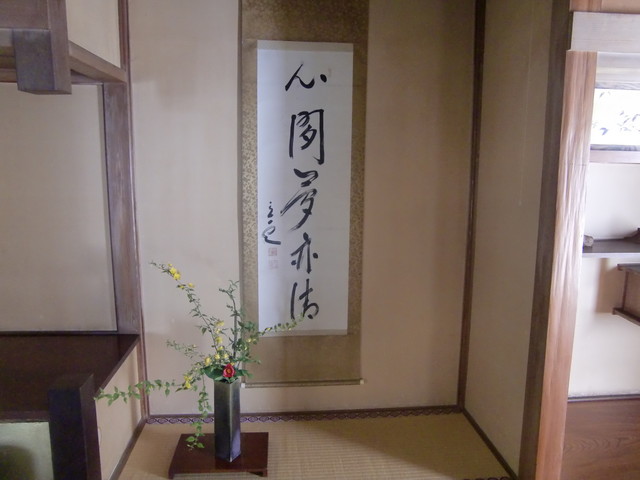 心閑夢亦清